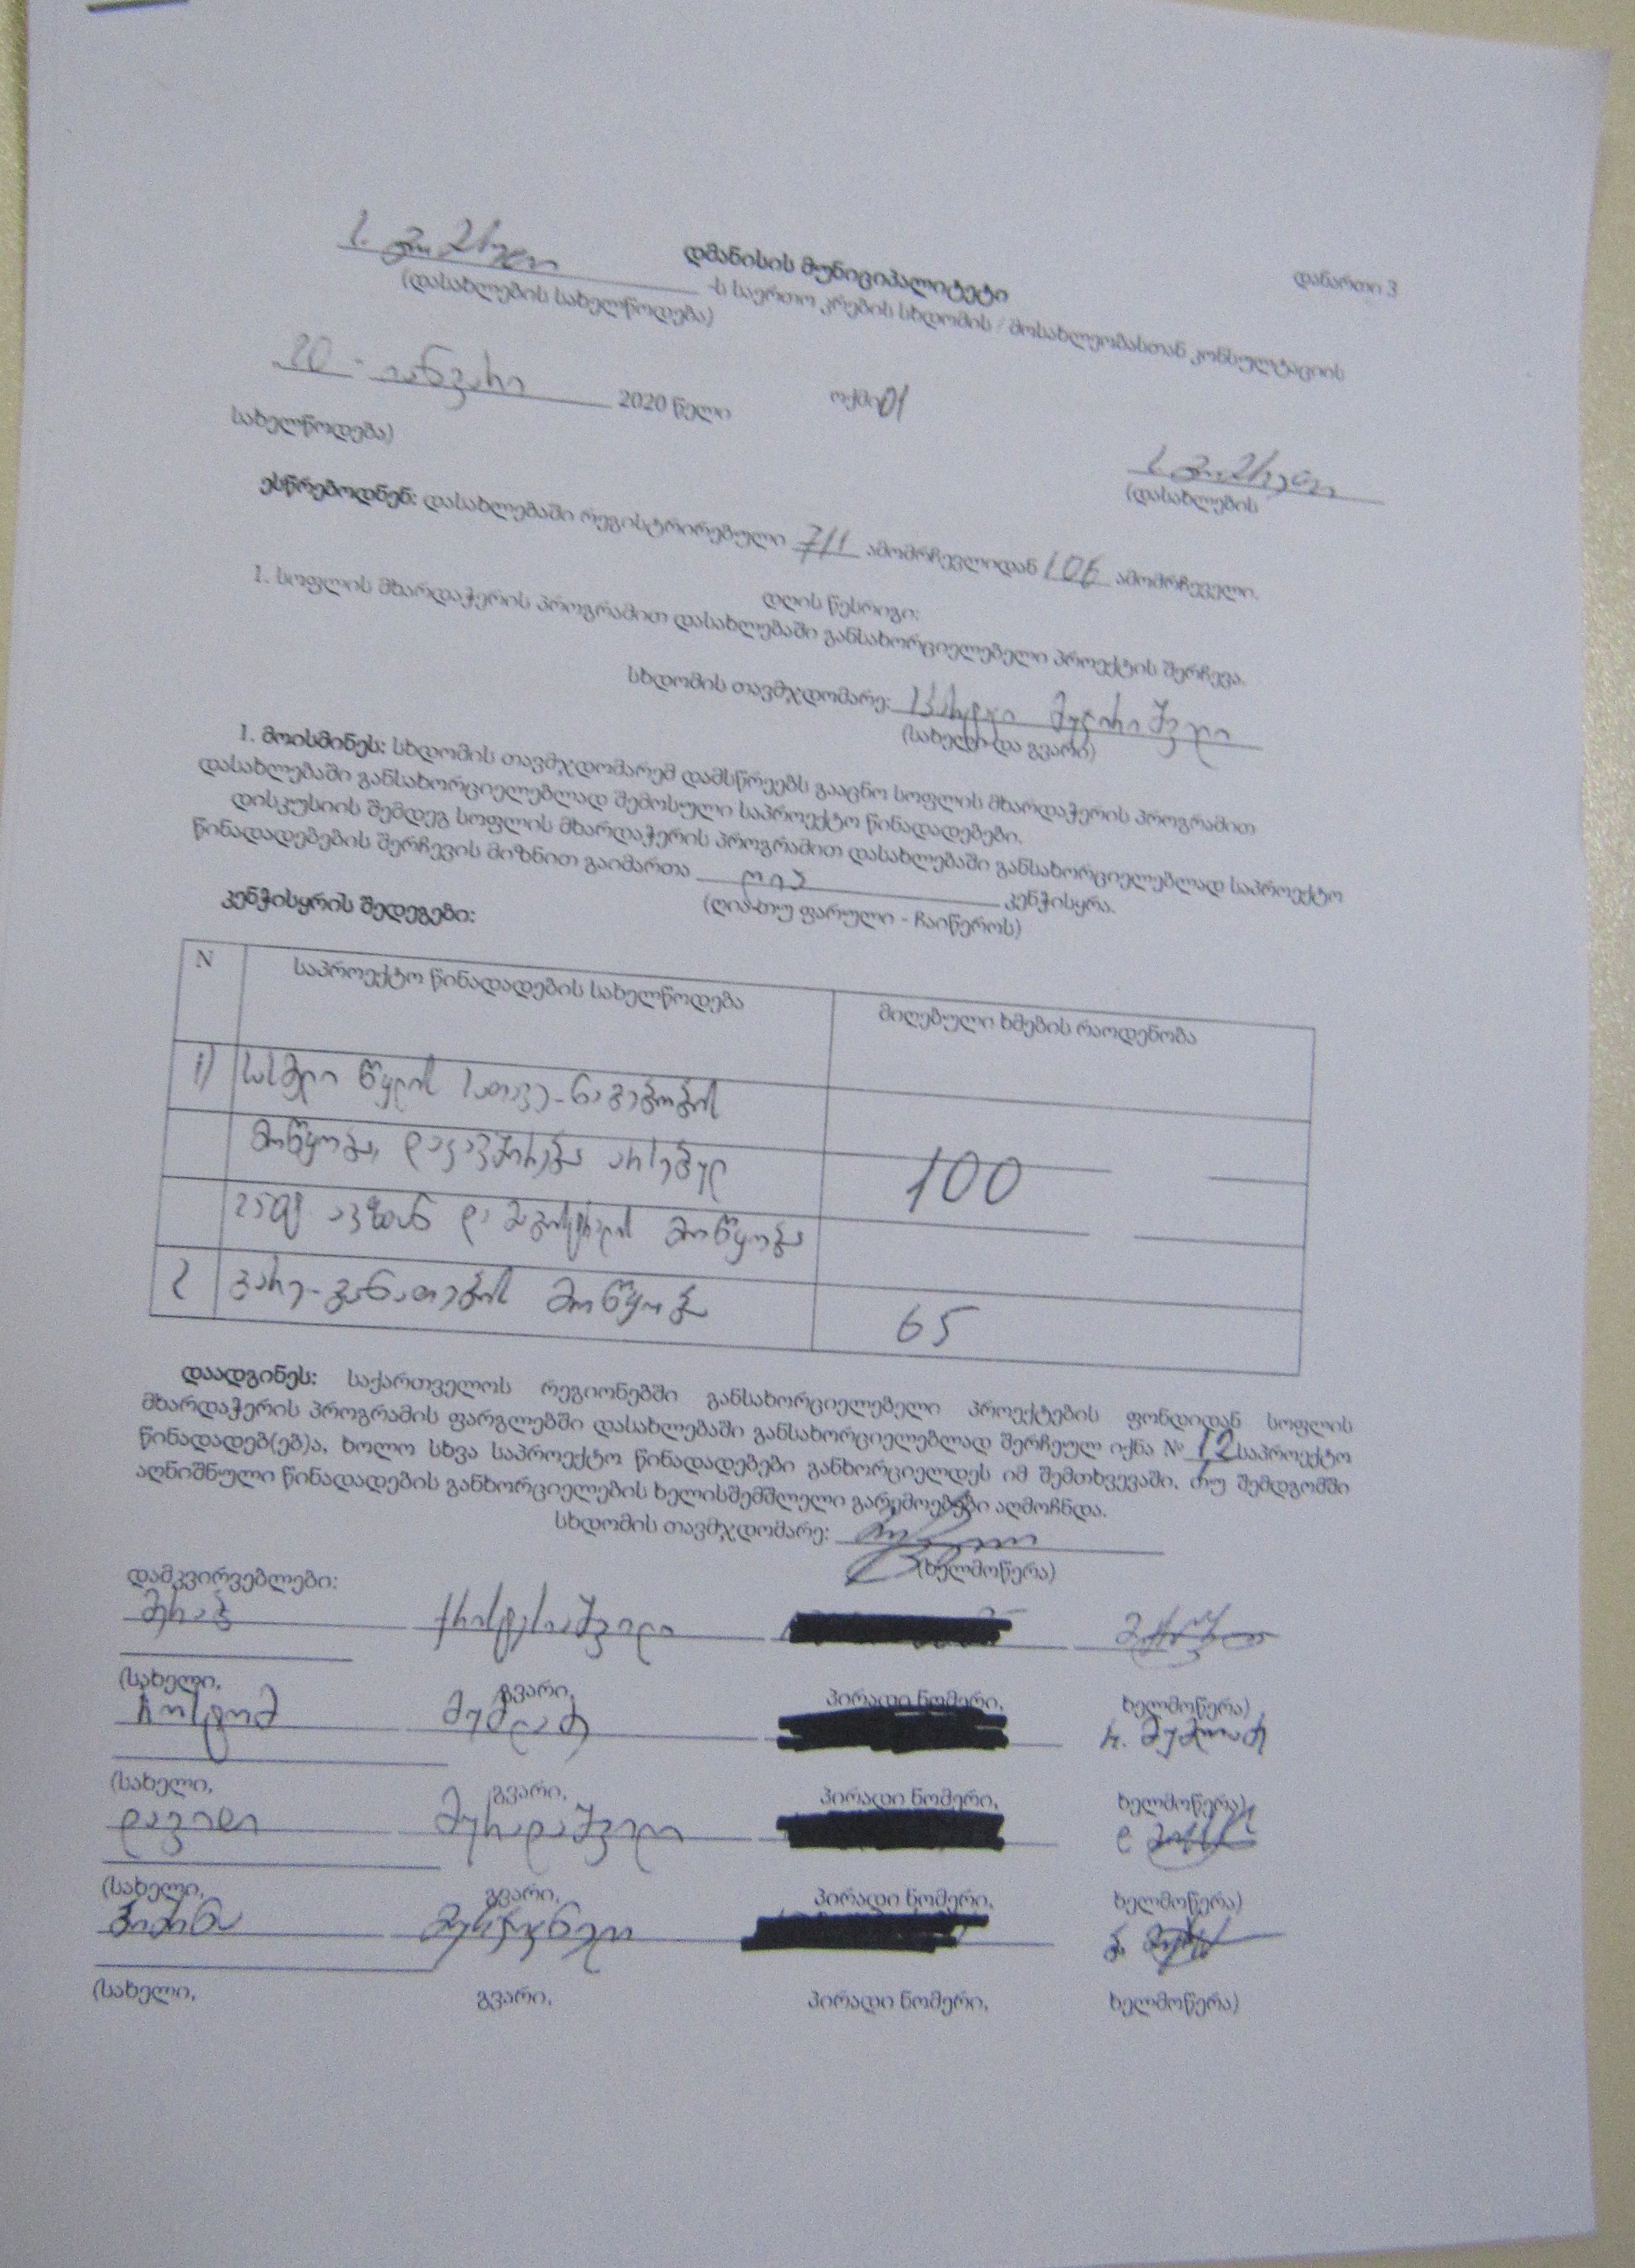 დანართი 3
დმანისის მუნიციპალიტეტი
ს. გომარეთი -ს საერთო კრების სხდომის / მოსახლეობასთან კონსულტაციის
(დასახლების სახელწოდება)
ოქმი 01
20 - იანვარი 2020 წელი
ს. გომარეთი
(დასახლების
სახელწოდება)
ესწრებოდნენ: დასახლებაში რეგისტრირებული 711 ამომრჩევლიდან 106 ამომრჩეველი.
დღის წესრიგი:
1. სოფლის მხარდაჭერის პროგრამით დასახლებაში განსახორციელებელი პროექტის შერჩევა.
სხდომის თავმჯდომარე:
(სახელი და გვარი)
1. მოისმინეს: სხდომის თავმჯდომარემ დამსწრეებს გააცნო სოფლის მხარდაჭერის პროგრამით
დასახლებაში განსახორციელებლად შემოსული საპროექტო წინადადებები.
დისკუსიის შემდეგ სოფლის მხარდაჭერის პროგრამით დასახლებაში განსახორციელებლად საპროექტო
წინადადებების შერჩევის მიზნით გაიმართა ღია კენჭისყრა.
(ღია თუ ფარული - ჩაიწეროს)
კენჭისყრის შედეგები:
N საპროექტო წინადადების სახელწოდება მიღებული ხმების რაოდენობა
1) სასმელი წყლის სათავე-ნაგებობის
მოწყობა, დაკავშირება არსებულ 100
ავზთან და მაგისტრალის მოწყობა
2 გარე-განათების მოწყობა 65
დაადგინეს: საქართველოს რეგიონებში განსახორციელებელი პროექტების ფონდიდან სოფლის
მხარდაჭერის პროგრამის ფარგლებში დასახლებაში განსახორციელებლად შერჩეულ იქნა № 1,2 საპროექტო
წინადადებ(ებ)ა, ხოლო სხვა საპროექტო წინადადებები განხორციელდეს იმ შემთხვევაში, თუ შემდგომში
აღნიშნული წინადადების განხორციელების ხელისშემშლელი გარემოებები აღმოჩნდა.
სხდომის თავმჯდომარე:
(ხელმოწერა)
დამკვირვებლები:
მერაბ ქრისტესიაშვილი
(სახელი, გვარი, პირადი ნომერი, ხელმოწერა)
როსტომ
(სახელი, გვარი, პირადი ნომერი, ხელმოწერა)
დავითი მურადაშვილი
(სახელი, გვარი, პირადი ნომერი, ხელმოწერა)
(სახელი, გვარი, პირადი ნომერი, ხელმოწერა)